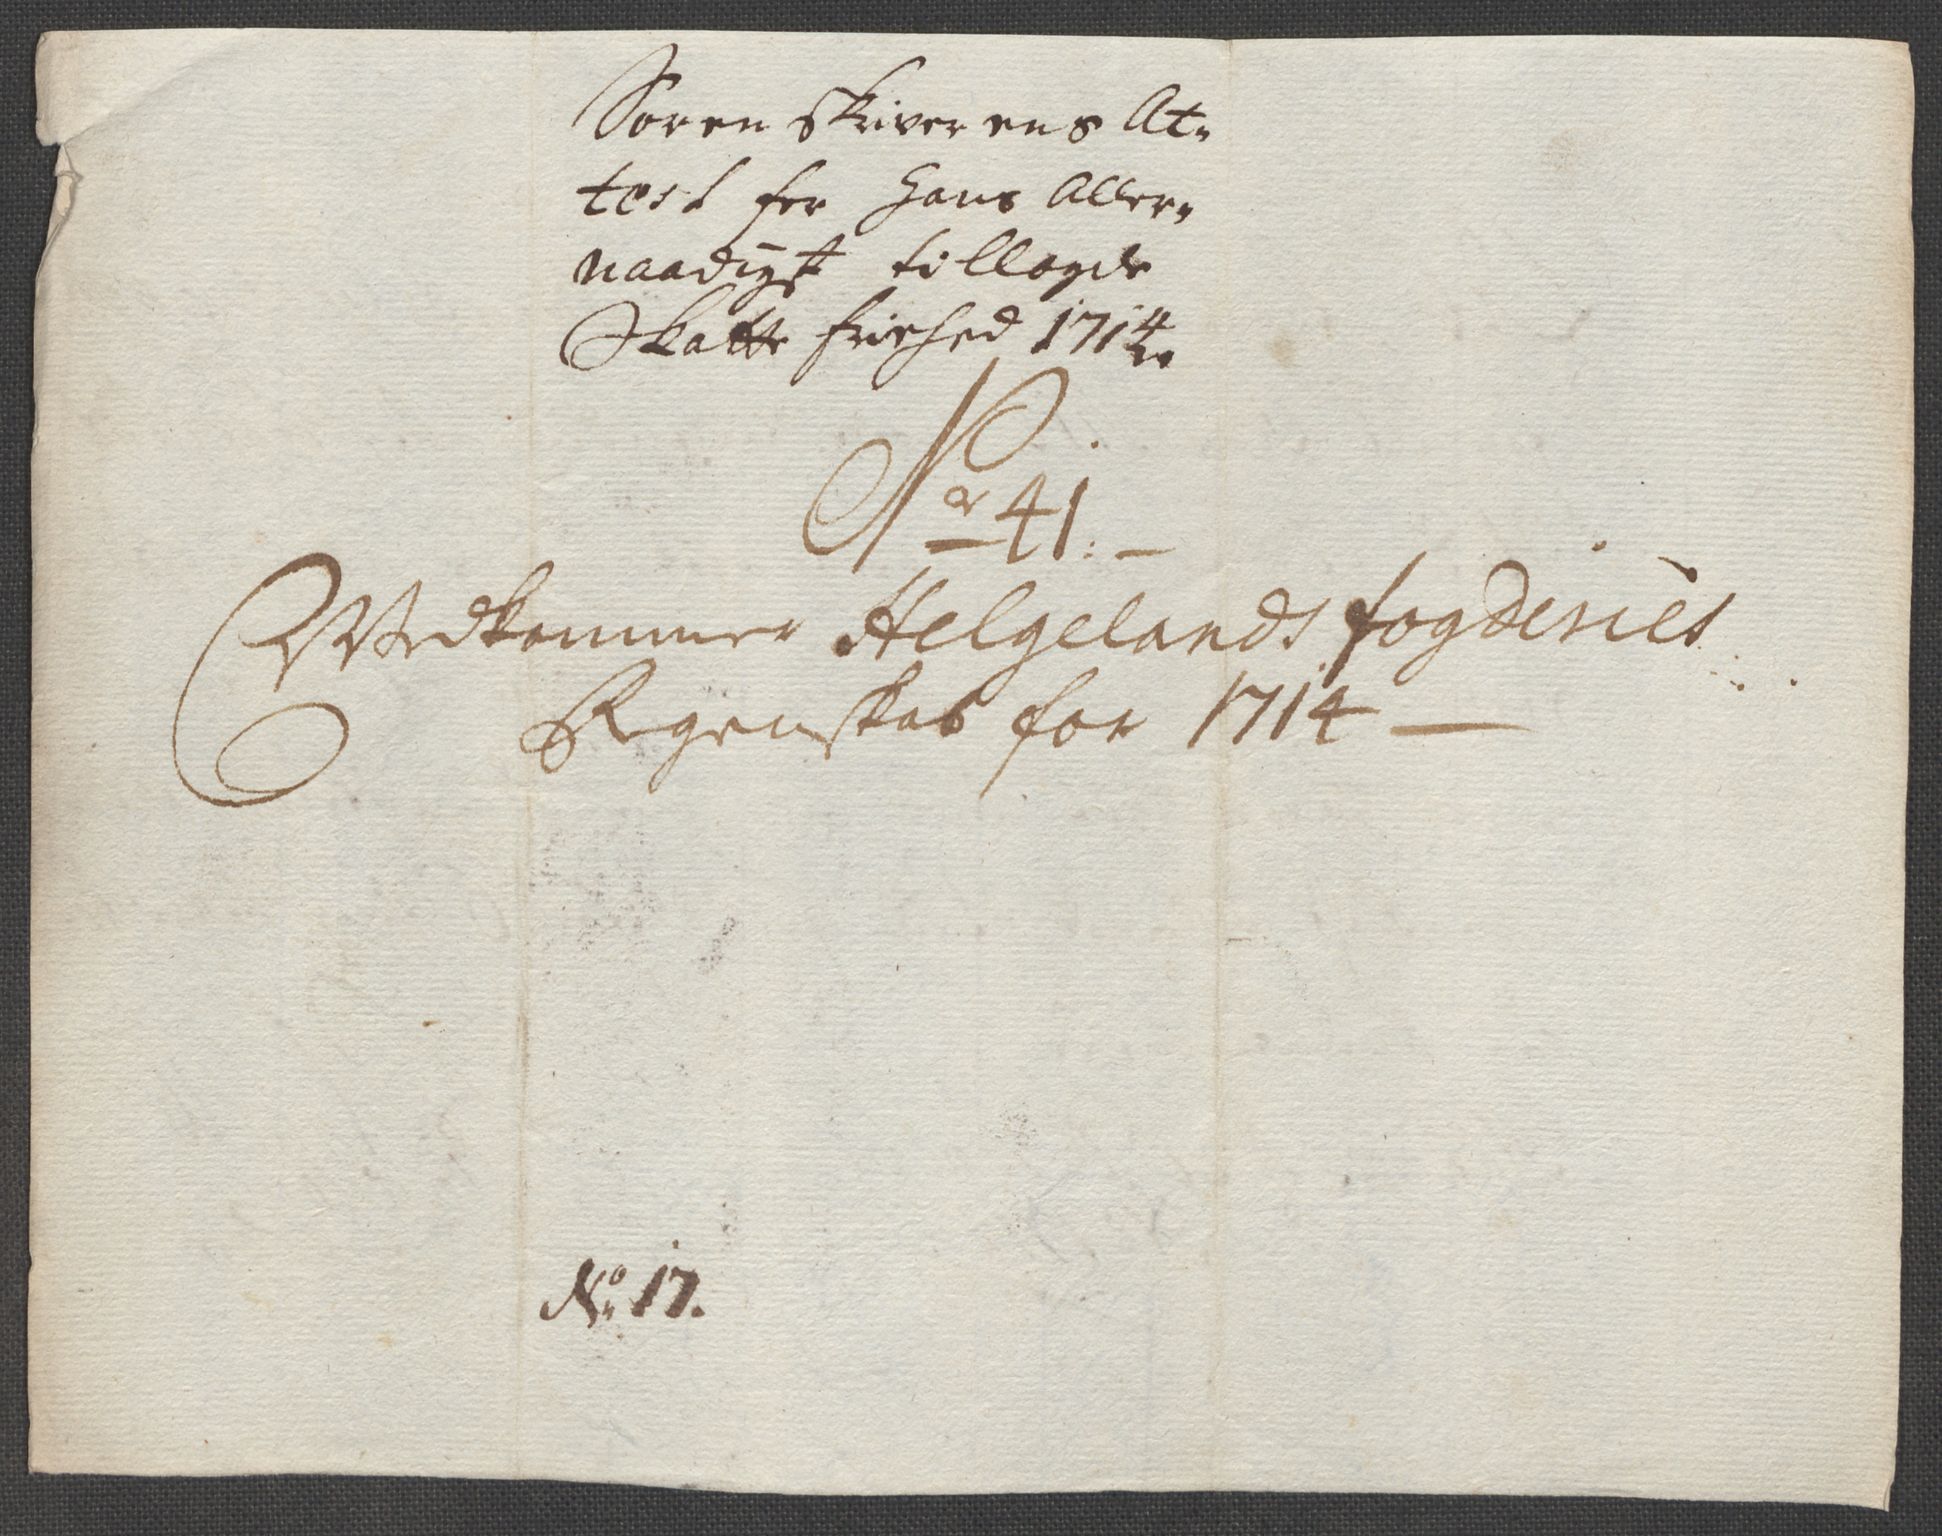 Soren skriverens At-
test for hans Aller-
naadigst tillagde
Skatte friehed 1714
Nr 41:
Vedkommer Helgelands fogderies
Regenskab for 1714
No 17.